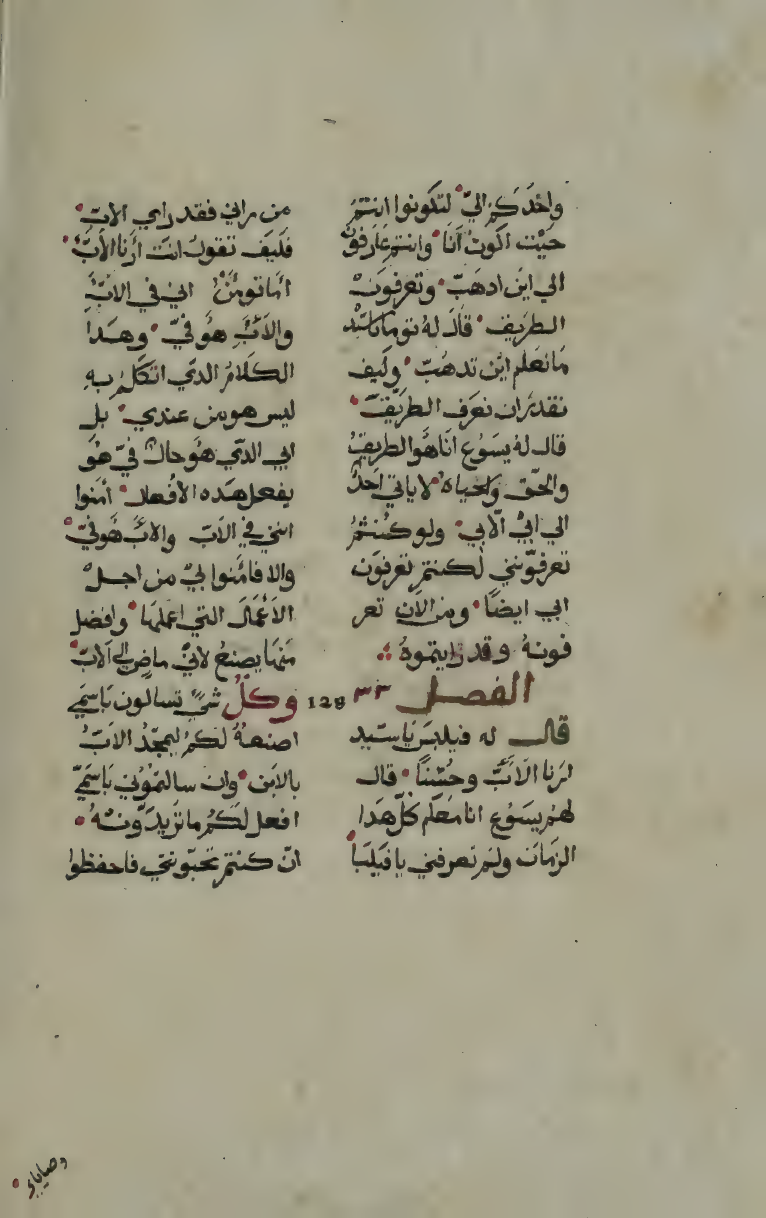 واخدكم اليّ لتكونوا انتم
حيت اكون أنا وانتم عارفون
الي اين ادهب وتعرفون
الطريف قال له توما ياسيد
مانعلم اين تدهب وكيف
نقدر ان نعرف الطريق
قال له يسوع اناهوالطريق
والحق والحياه لاياتي احدٌ
الي ابي الّابي ولو كنتم
تعرفونني لكنتم تعرفون
ابي ايضًا ومن الآن تعر
فونهُ وقد رايتموهُ
الفصل ٣٣ 128
قال له فيلبس ياسيد
ارنا الآب وحسبنا قال
لهم يسوع انا معكم كلّ هدا
الزمان ولم تعرفني يا فيلبا
من راني فقد راي الاب
فكيف تقول انت ارنا الآب
اما تومن اني في الاب
والاب هو فيّ وهدا
الكلام الدي اتكلم به
ليس هو من عندي بل
ابي الدي هو حال فيّ هو
يفعل هده الافعال امنوا
انني في الاب والاب هو فيّ
والا فامنوا لي من اجل
الاعمال التي اعملها وافضل
منها يصنع لاني ماضٍ الي الاب
وكل شيٍ تسالون باسمي
اصنعهُ لكم ليمجد الاب
بالابن وان سالتموني باسمي
افعل لكم ما تريدونهُ
ان كنتم تحبونني فاحفظوا
وصاياي